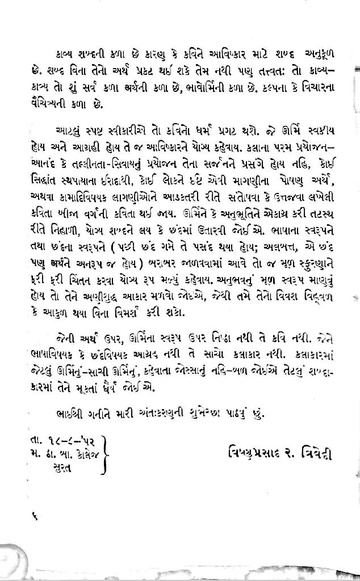 કાવ્ય શબ્દની કળા છે કારણ કે કવિને આવિષ્કાર માટે શબ્દ અનુકૂળ
છે. શબ્દ વિના તેનો અર્થ પ્રકટ થઈ શકે તેમ નથી પણ તત્ત્વતઃ તો કાવ્ય–
કાવ્ય તો શું સર્વ કળા અર્થની કળા છે, ભાવોર્મિની કળા છે. કલ્પના કે વિચારના
વૈચિત્ર્યની કળા છે.
આટલું સ્પષ્ટ સ્વીકારીએ તો કવિનો ધર્મ પ્રગટ થશે. જે ઊર્મિ સ્વકીય
હોય અને આગ્રહી હોય તે જ આવિષ્કારને યોગ્ય કહેવાય. કલાના પરમ પ્રયોજન–
આનંદ કે તલ્લીનતા–સિવાયનું પ્રયોજન તેના સર્જનને પ્રસંગે હોય નહિ, કોઈ
સિદ્ધાંત સ્થપાયાના ઈરાદાથી, કોઈ લોકને ઈષ્ટ એવી માગણીના પોષણ અર્થે,
અથવા કામાદિવિષયક લાગણીઓને આડકતરી રીતે સંતોષવા કે ઉત્તજવા લખેલી
કવિતા બીજા વર્ગની કવિતા થઈ જાય. ઊર્મિને કે અનુભૂતિને એકાગ્ર કરી તટસ્થ
રીતે નિહાળી, યોગ્ય શબ્દને લય કે છંદમાં ઉતારવી જોઈએ. ભાષાના સ્વરૂપને
તથા છંદના સ્વરૂપને ( પછી છંદ ગમે તે પસંદ થયા હોય; અલબત્ત, એ છંદ
પણ અર્થને અનરૂપ જ હોય ) બરાબર જાળવવામાં આવે તો જ મૂળ સ્ફુરણાને
ફરી ફરી ચિંતન કરવા યોગ્ય રૂપ મળ્યું કહેવાય. અનુભવનું મૂળ સ્વરૂપ માણવું
હોય તો તેને અણીશુદ્ધ આકાર મળવો જોઈએ, જેથી તમે તેનો વિવશ વિહ્વળ
કે આકુળ થયા વિના વિમર્શ કરી શકો.
જેની અર્થ ઉપર, ઊર્મિના સ્વરૂપ ઉપર નિષ્ઠા નથી તે કવિ નથી. જેને
ભાષાવિષયક કે છંદવિષયક આગ્રહ નથી તે સાચો કલાકાર નથી. કલાકારમાં
જેટલું ઊર્મિનું–સાચી ઊર્મિનું, કહેવાતા જોસ્સાનું નહિ–બળ જોઈએ તેટલું શબ્દા-
કારમાં તેને મૂકતાં ધૈર્ય જોઈએ.
ભાઈશ્રી ગનીને મારી અંતઃકરણની શુભેચ્છા પાઠવું છું.
તા. ૧૮–૮–'૫૨
મ. ઠા. બા. કોલેજ
સુરત
વિષ્ણુપ્રસાદ ર. ત્રિવેદી
૬